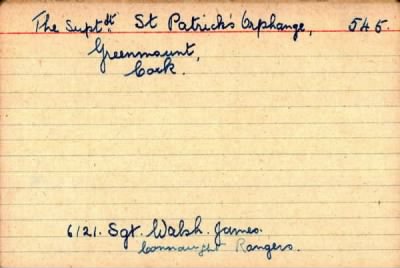 The Suptdt. St Patrick's Orphange, 545.
Greenmount,
Cork.
6121. Sgt. Walsh. James.
Connaught Rangers.